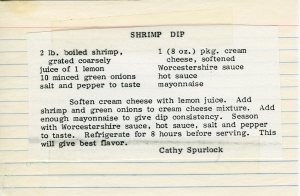 SHRIMP DIP
2 lb. boiled shrimp, 1 (8 oz.) pkg. cream
grated coarsely cheese, softened
juice of 1 lemon Worcestershire sauce
10 minced green onions hot sauce
salt and pepper to taste mayonnaise
Soften cream cheese with lemon juice. Add
shrimp and green onions to cream cheese mixture. Add
enough mayonnaise to give dip consistency. Season
with Worcestershire sauce, hot sauce, salt and pepper
to taste. Refrigerate for 8 hours before serving. This
will give best flavor.
Cathy Spurlock